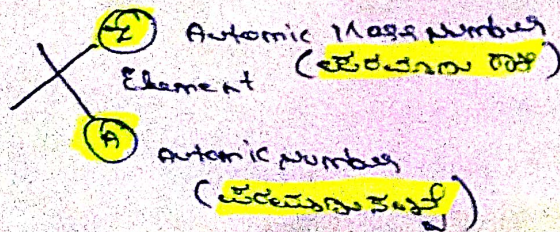 Z Automic Mass Number
(ಪರಮಾಣು ರಾಶಿ)
X Element
A Automic Number
(ಪರಮಾಣು ಸಂಖ್ಯೆ)